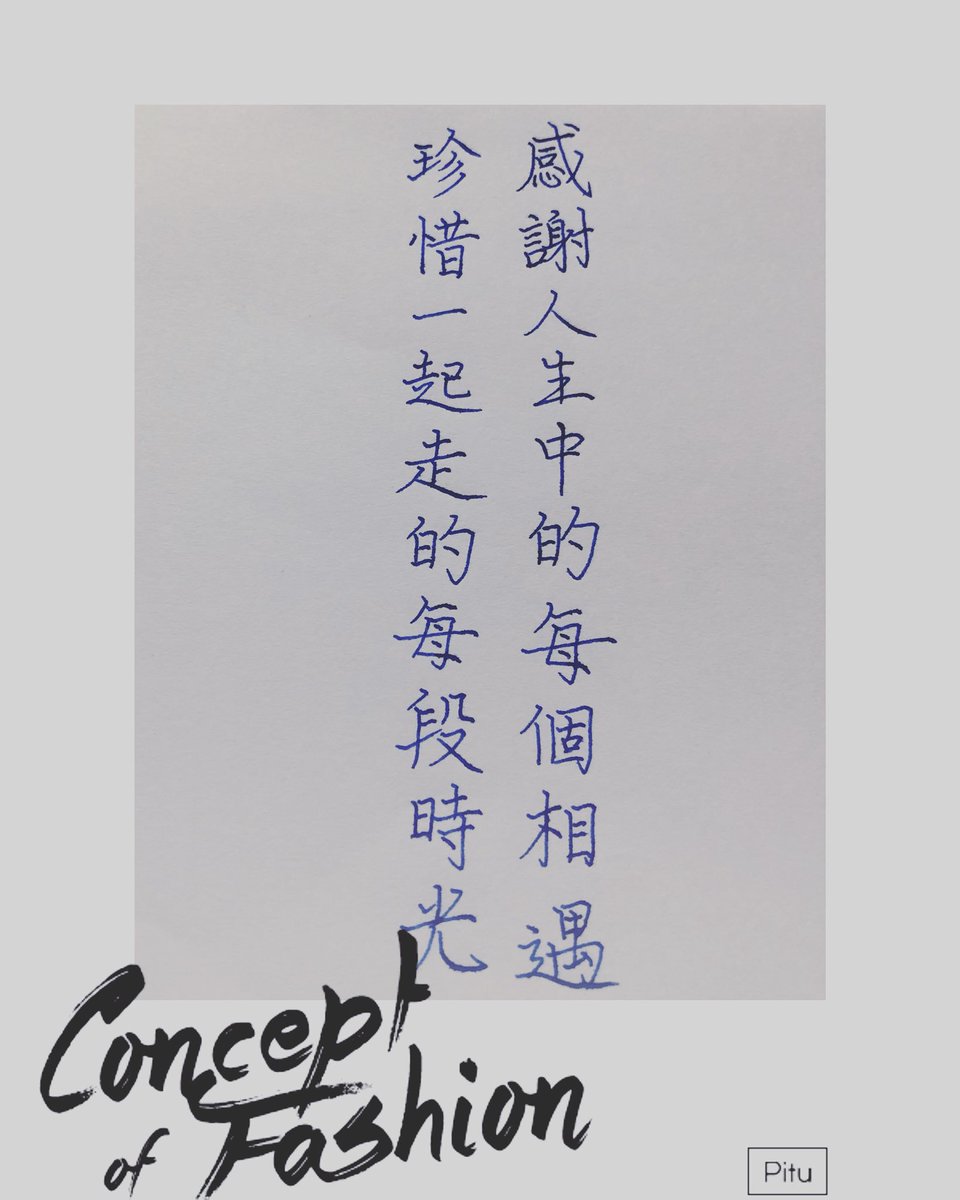 感謝人生中的每個相遇
珍惜一起走的每段時光
Concept
of Fashion
Pitu